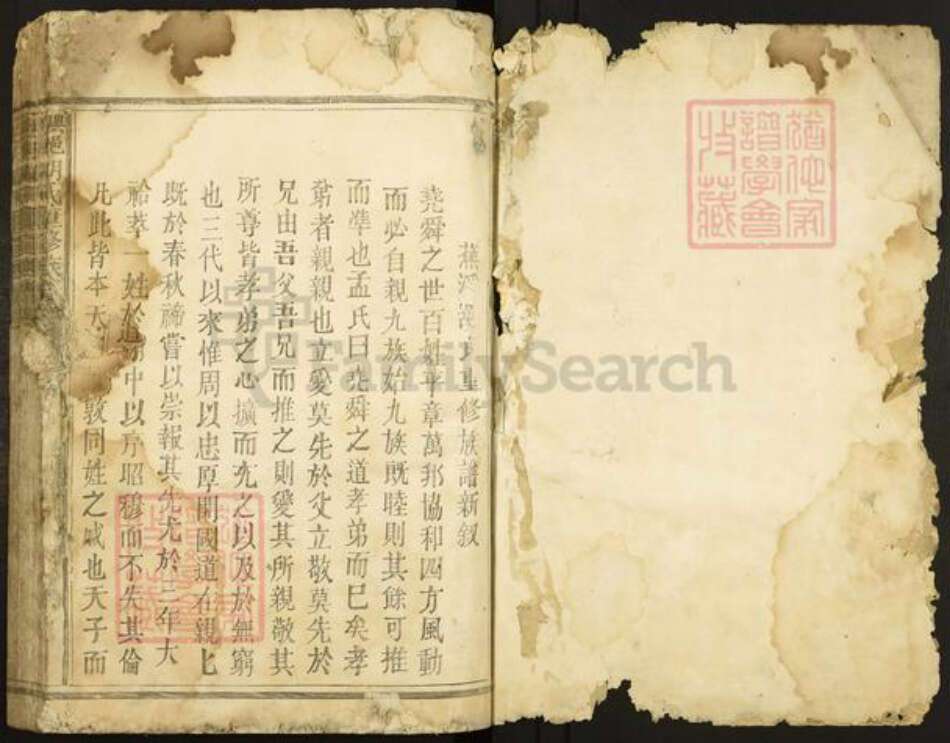 猶他家
譜學會
收藏
蕉溪 重修族譜新叙
堯舜之世百姓平章萬邦協和四方風動
而必自親九族始九族既睦則其餘可推
而準也孟氏曰堯舜之道孝弟而已矣孝
弟者親親也立愛莫先於父立敬莫先於
兄由吾父吾兄而推之則愛其所親敬其
所尊皆孝弟之心擴而充之以及於無窮
也三代以來惟周以忠厚開國道在親匕
既於春秋禘嘗以崇報其先尤於三年大
祫萃一姓於 中以序昭穆而不失其倫
凡此皆本天 敦同姓之 也天子而
胡氏重修族
FamilySearch